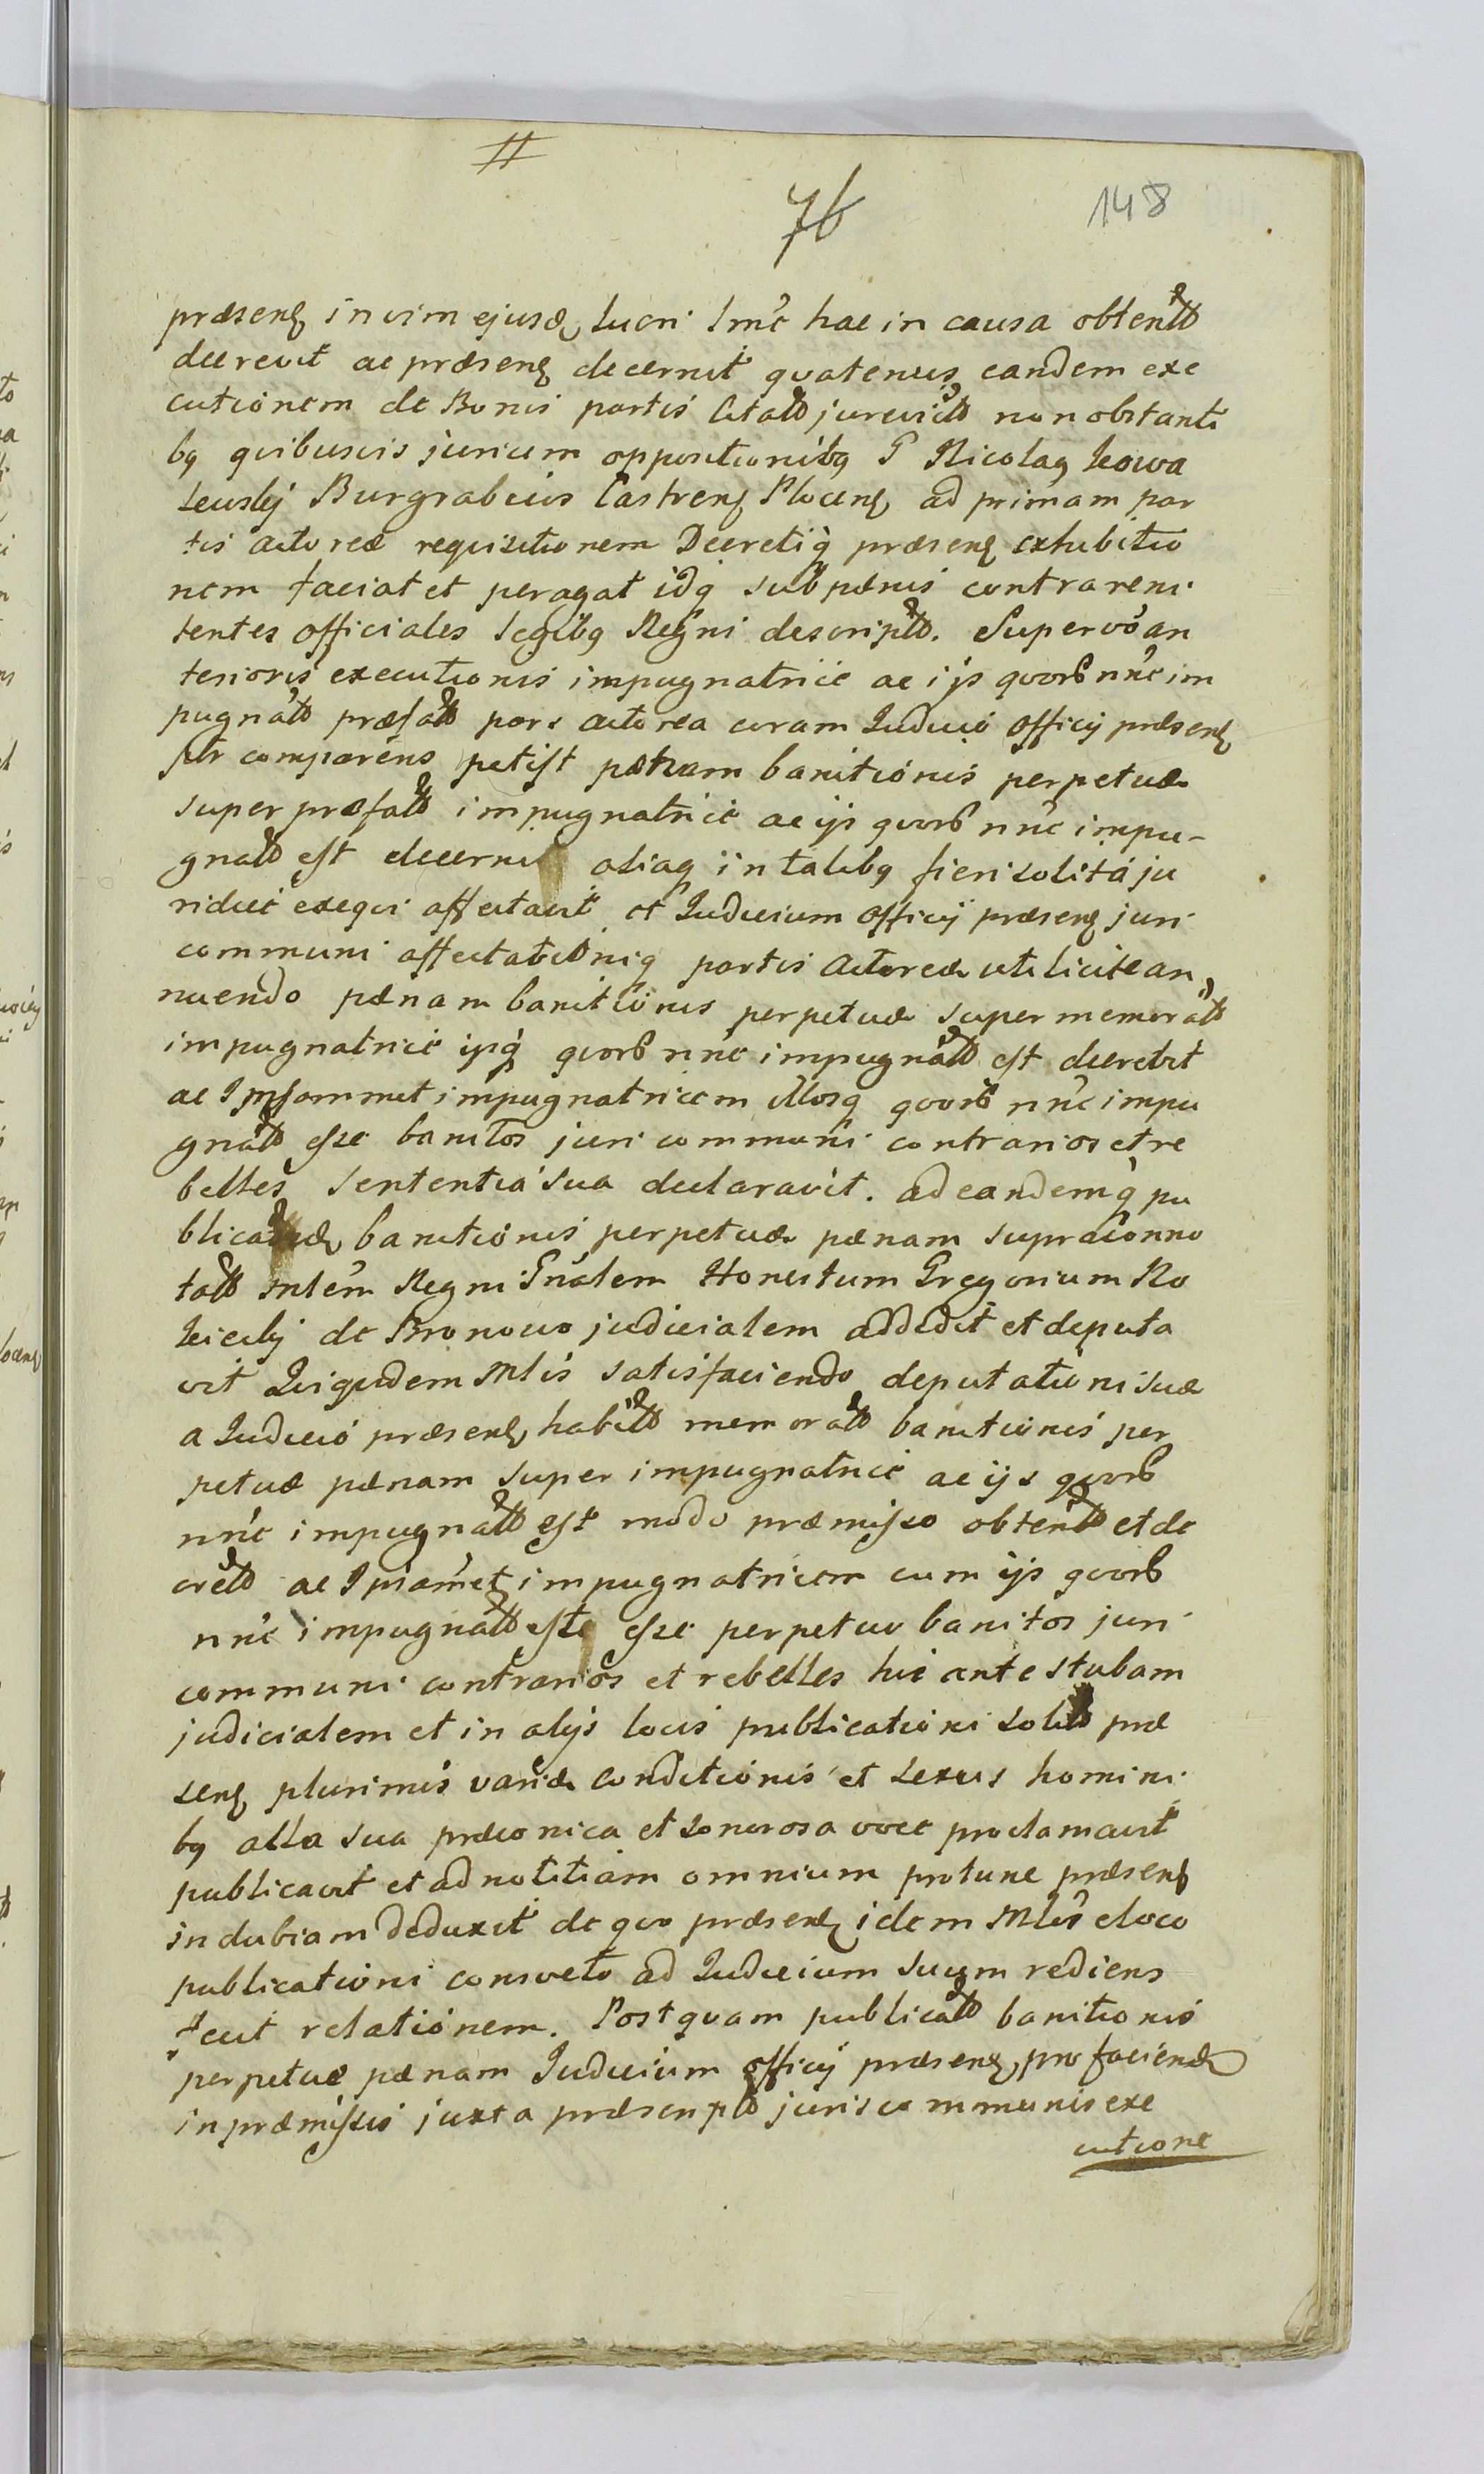 76
148
præsenꝫ in vim ejusdꝫ lucri hac in causa obtentꝫ
decrevit ac præsenꝫ decernit quatenus eandem exe
cutionem de Bonis partis Citatꝫ jurevictꝫ non obstanti
bꝫ quibusvis jurium oppositionibꝫ G Nicolaꝫ
Burgrabius Castrenꝫ Plocenꝫ ad primam par
tis actoreæ requisitionem Decretiq præsenꝫ exhibitio
nem faciat et peragat idq sub pænis contra reni
tentes officiales legibꝫ Regni descriptꝫ. Super vo an
terioris executionis impugnatric ac ijs quorꝫ nnc im
pugnatꝫ præfatꝫ pars actorea coram Iudicio officij præsenꝫ
ptr comparens petijt pænam banitionis perpetuæ
super præfatꝫ impugnatric ac ijs quorꝫ nnc impu-
gnatꝫ est decerni aliaq in talibꝫ fieri solita ju
ridice exequi affectavit et Iudicium officij præsenꝫ juri
communi affectationiq partis Actoreæ utilicite an
nuendo pænam banitionis perpetuæ super memoratꝫ
impugnatric ijsq quorꝫ nnc impugnatꝫ est decrevit
ac Ipsammet impugnatricem illosq quorꝫ nnc impu
gnatꝫ esse banitos juri communi contrarios et re
belles sententia sua declaravit. ad eandemq pu
blicandꝫ banitionis perpetuæ pænam supraconno
tatꝫ Mlem Regni Gnalem Honestum Gregorium Ro
de Bronowo judicialem addidit et deputa
vit Quiquidem Mlis satisfaciendo deputationi suæ
a Iudicio præsenꝫ habitꝫ memoratꝫ banitionis per
petuæ pænam super impugnatric ac ijs quorꝫ
nnc impugnatꝫ est modo præmisso obtentꝫ et de
cretꝫ ac Ipsamet impugnatricem cum ijs quorꝫ
nnc impugnatꝫ este esse perpetuo banitos juri
communi contrarios et rebelles hic ante stubam
judicialem et in alijs locis publicationi solitꝫ præ
senꝫ plurimis variæ conditionis et sexus homini
bꝫ alta sua præconica et sonorosa voce proclamavit
publicavit et ad notitiam omnium protunc præsenꝫ
indubiam deduxit de quo præsenꝫ idem Mlis e loco
publicationi consveto ad Iudicium suum rediens
fecit relationem. Post quam publicatꝫ banitionis
perpetuæ pænam Iudicium officij præsenꝫ pro faciendꝫ
in præmissis juxta præscriptꝫ juris communis exe
cutione